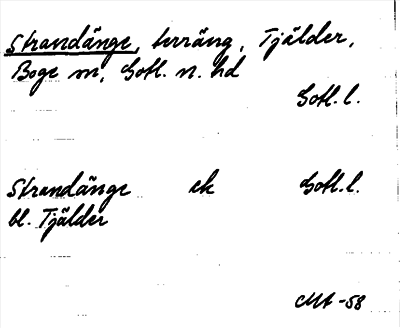 Strandänge, terräng, Tjälder,
Boge sn, Gotl. n. hd
Gotl. l.
Strandänge ek Gotl. l.
bl. Tjälder
-58